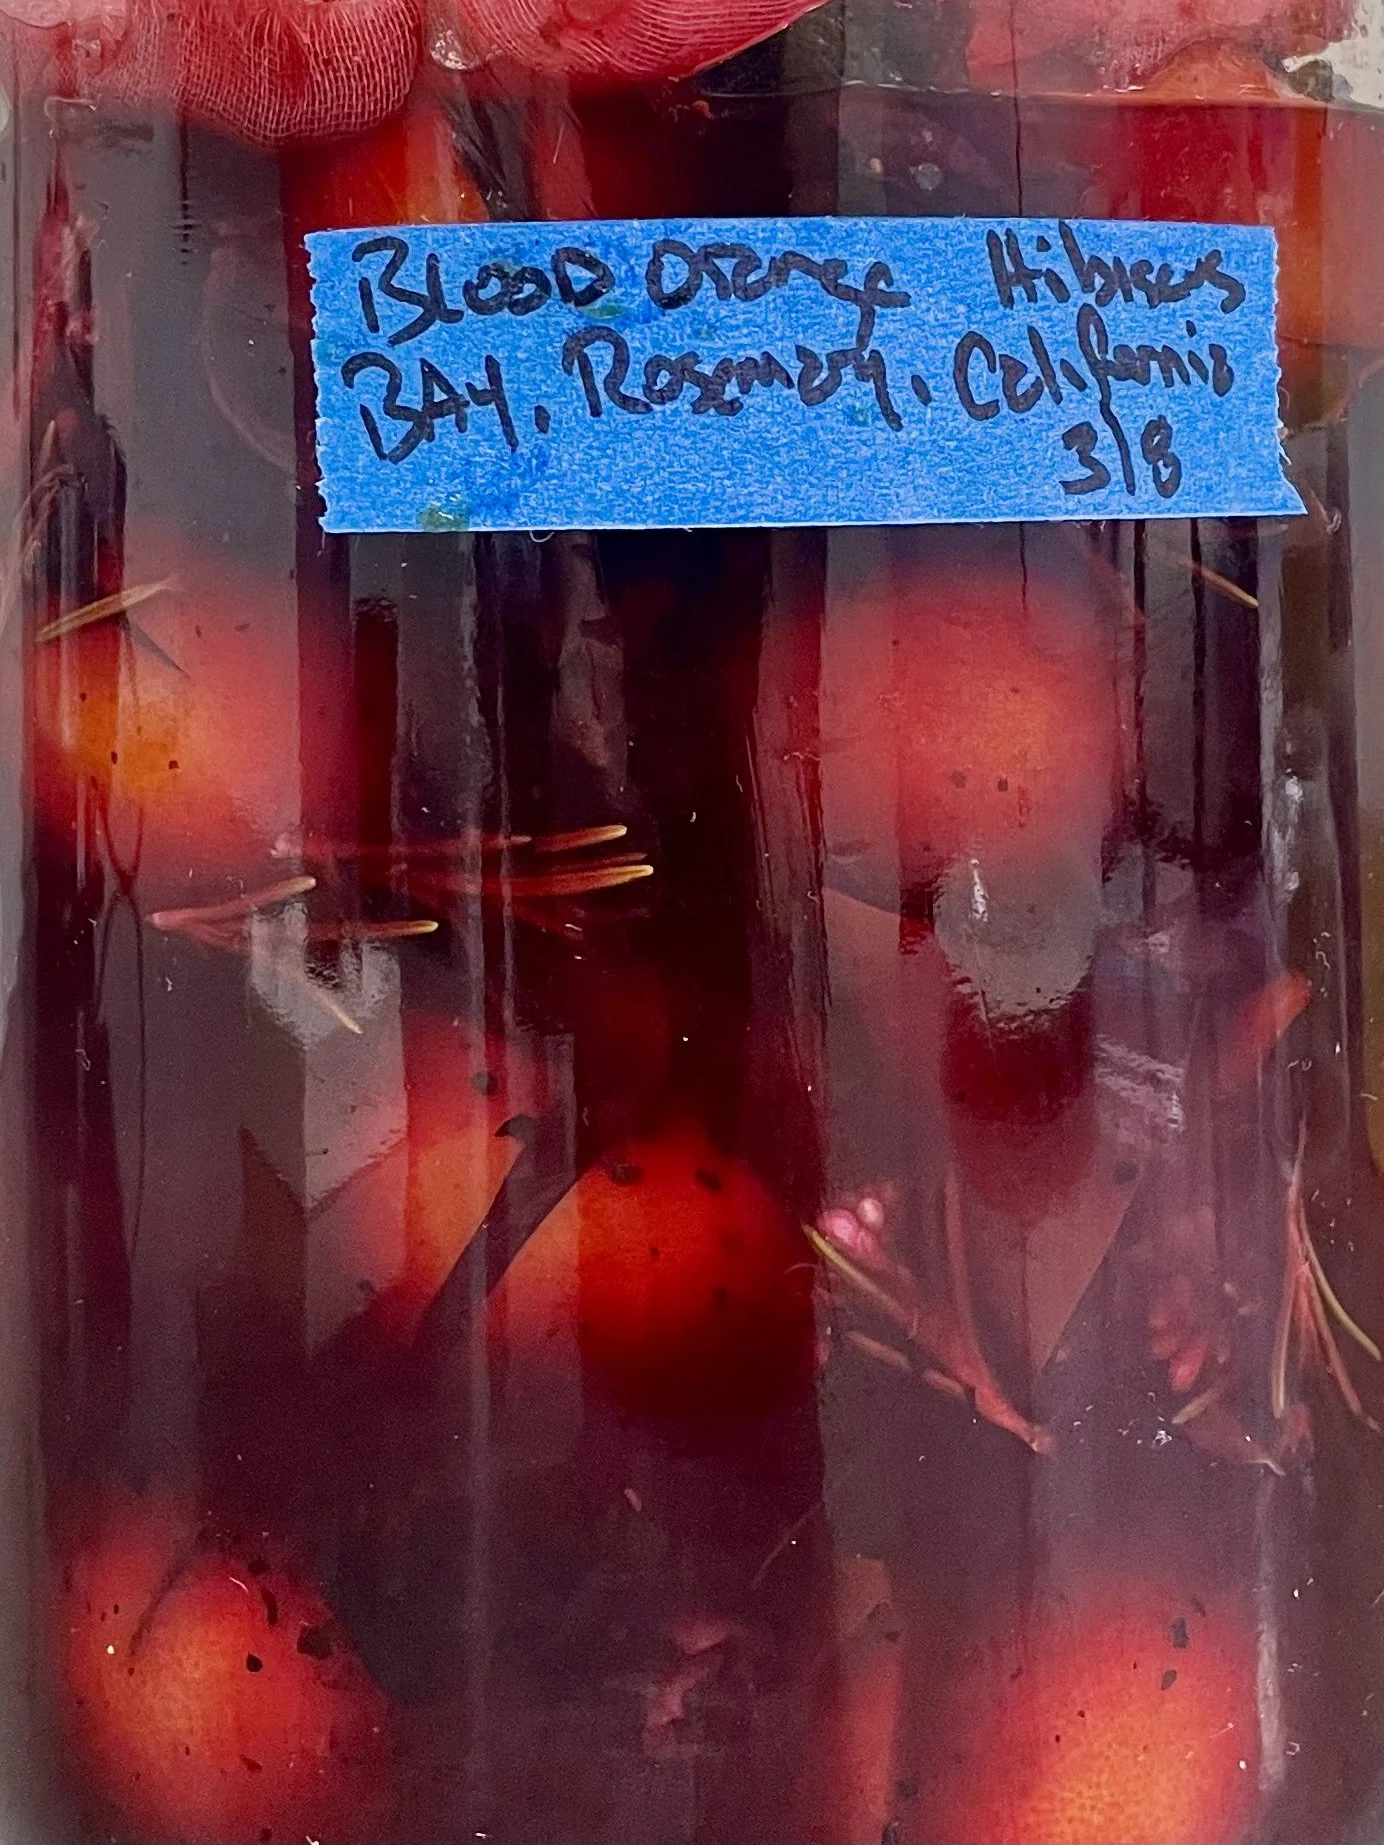 BLOOD Orange Hibiscus
BAY. Rosemary. California
3/8